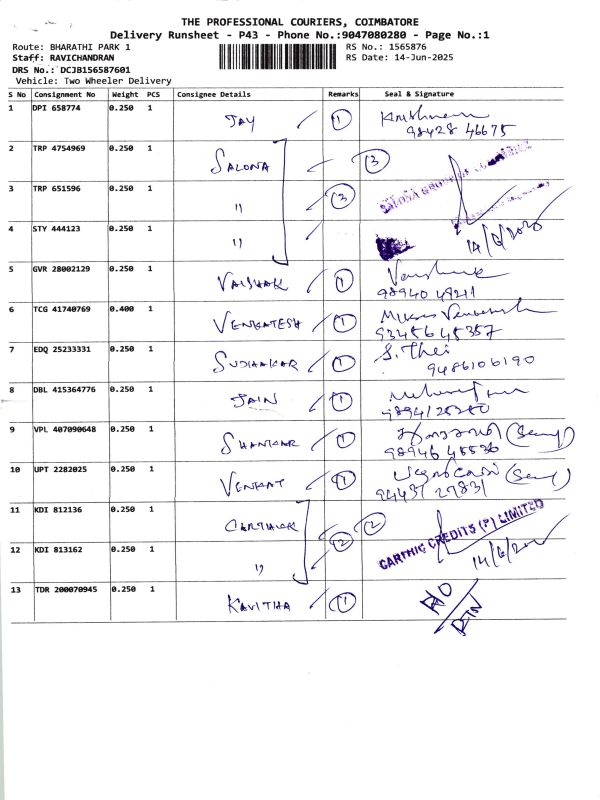 THE PROFESSIONAL COURIERS, COIMBATORE
Delivery Runsheet - P43 - Phone No.:9047080280 - Page No.:1
Route: BHARATHI PARK 1 RS No.: 1565876
Staff: RAVICHANDRAN RS Date: 14-Jun-2025
DRS No.: DCJB156587601
Vehicle: Two Wheeler Delivery
S No Consignment No Weight PCS Consignee Details Remarks Seal & Signature
1 DPI 658774 0.250 1 JAY 1
98428 46675
2 TRP 4754969 0.250 1 SALONA 3
3 TRP 651596 0.250 1 " 3
4 STY 444123 0.250 1 "
5 GVR 28002129 0.250 1 VAISHAK 1
98940 49211
6 TCG 41740769 0.400 1 VENKATESH 1
93456 45357
7 EDQ 25233331 0.250 1 SUDHAKAR 1 S.
9486106190
8 DBL 415364776 0.250 1 JAIN 1
9 VPL 407090648 0.250 1 SHANKAR 1
98946 45536
10 UPT 2282025 0.250 1 VENKAT 1
94437 27831
11 KDI 812136 0.250 1 CARTHICK 2 CARTHIC CREDITS (P) LIMITED
12 KDI 813162 0.250 1 " 2
13 TDR 200070945 0.250 1 KAVITHA 1
RTN